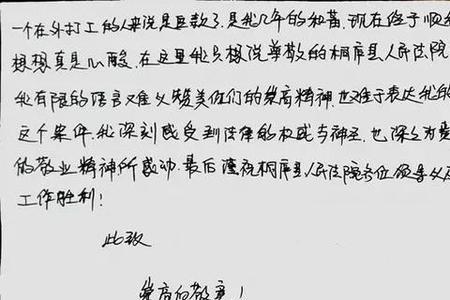 一个在外打工的人来说是巨款了.是我几年的积蓄.现在终于顺
想想真是心酸.在这里我只想说尊敬的桐庐县人民法院
我有限的语言难以赞美你们的崇高精神.也难于表达我的
这个案件.我深刻感受到法律的权威与神圣.也深深为
的敬业精神所感动.最后谨祝桐庐县人民法院各位领导以及
工作胜利!
此致
崇高的敬意!